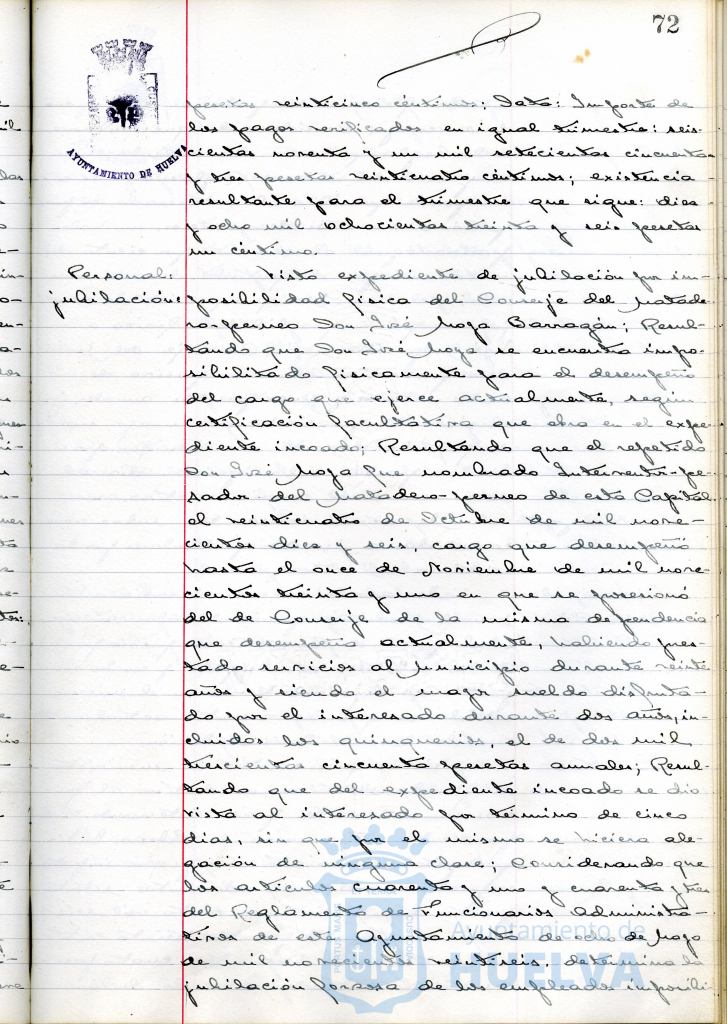 72
AYUNTAMIENTO DE HUELVA
pesetas veinticinco céntimos; Data: Importe de
los pagos verificados en igual trimestre: seis-
cientas noventa y un mil setecientas cincuenta
y tres pesetas veinticuatro céntimos; existencia
resultante para el trimestre que sigue: dies
y ocho mil ochocientas treinta y seis pesetas
un céntimo.
Personal:
jubilación:
Visto expediente de jubilación por im-
posibilidad física del Conserje del Matade-
ro-perneo Don José Moya Barragán; Resul-
tando que Don José Moya se encuentra impo-
sibilitado físicamente para el desempeño
del cargo que ejerce actualmente, según
certificación facultativa que obra en el expe-
diente incoado; Resultando que el repetido
Don José Moya fue nombrado Interventor-pe-
sador del Matadero-perneo de esta Capital
el veinticuatro de Octubre de mil nove-
cientos dies y seis, cargo que desempeñó
hasta el once de Noviembre de mil nove-
cientos treinta y uno en que se posesionó
del de Conserje de la misma dependencia
que desempeña actualmente, habiendo pres-
tado servicios al Municipio durante veinte
años y siendo el mayor sueldo disfruta-
do por el interesado durante dos años, in-
cluidos los quinquenios, el de dos mil
trescientas cincuenta pesetas anuales; Resul-
tando que del expediente incoado se dio
vista al interesado por término de cinco
dias, sin que por el mismo se hiciera ale-
gación de ninguna clase; Considerando que
los artículos cuarenta y uno y cuarenta y tres
del Reglamento de Funcionarios Administra-
tivos de este Ayuntamiento de ocho de Mayo
de mil novecientos veintiseis determina la
jubilación forzosa de los empleados imposibi-
Ayuntamiento de
HUELVA